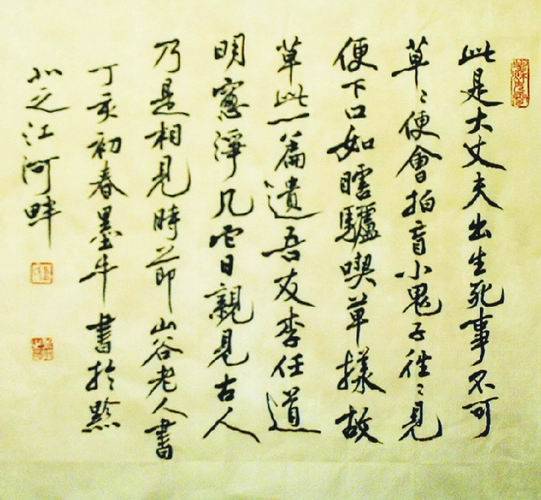 此是大丈夫出生死事不可
草〻便會拍盲小鬼子往〻見
便下口如瞎驢喫草樣故
草此一篇遺吾友李任道
明窻淨几它日親見古人
乃是相見時節山谷老人書
丁亥初春墨牛書於黔
北之江河畔